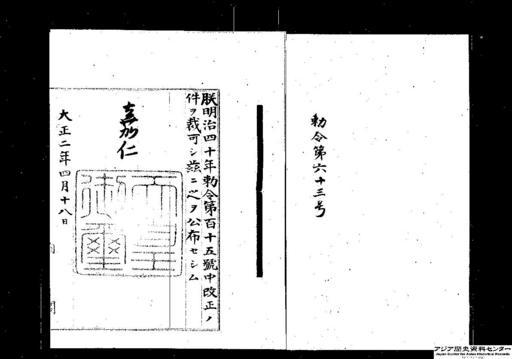 勅令第六十三号
朕明治四十年勅令第百十五號中改正ノ
件ヲ裁可シ茲ニ之ヲ公布セシム
嘉仁
天皇
御璽
大正二年四月十八日
内閣
アジア歴史資料センター
Japan Center for Asian Historical Records